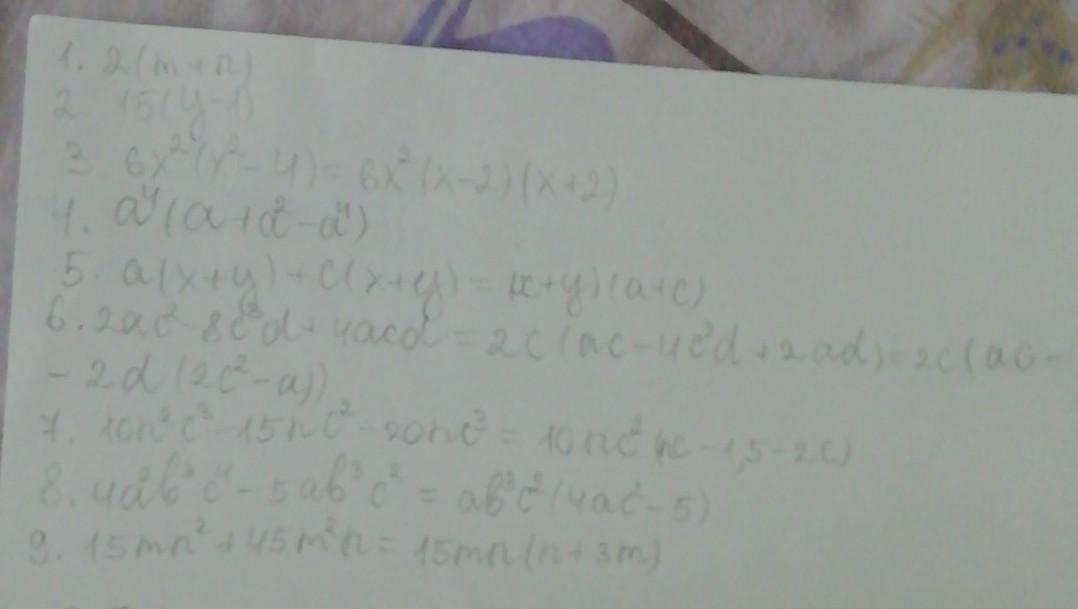 1. 2(m+n)
2. 15(y-1)
3 6x²(x²-4)=6x²(x-2)(x+2)
4. a⁴(a+a²-a⁴)
5. a(x+y)+c(x+y)=(x+y)(a+c)
6. 2ac²-8c³d+4acd=2c(ac-4c²d+2ad)=2c(ac-
-2d(2c²-a))
7. 10n²c³-15nc²-20nc³=10nc²(nc-1,5-2c)
8. 4a²b³c⁴-5ab³c²=ab³c²(4ac²-5)
9. 15mn²+45m²n=15mn(n+3m)